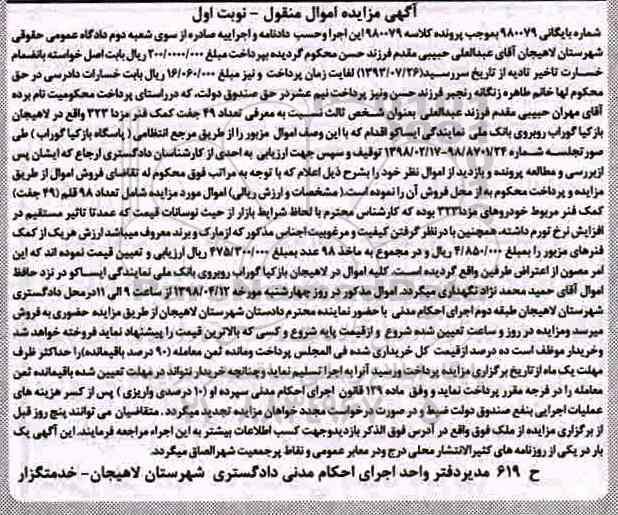 آگهی مزایده اموال منقول - نوبت اول
شماره بایگانی ۹۸۰۰۷۹ بموجب پرونده کلاسه ۹۸۰۰۷۹ این اجرا وحسب دادنامه و اجراییه صادره از سوی شعبه دوم دادگاه عمومی حقوقی
شهرستان لاهیجان آقای عبدالعلی حبیبی مقدم فرزند حسن محکوم گردیده بپرداخت مبلغ ۲۰۰/۰۰۰۰/۰۰۰ ریال بابت اصل خواسته بانضمام
خسارت تاخیر تادیه از تاریخ سررسید(۱۳۹۲/۰۷/۲۶) لغایت زمان پرداخت و نیز مبلغ ۱۶/۰۶۰/۰۰۰ ریال بابت خسارات دادرسی در حق
محکوم لها خانم طاهره زنگانه رنجبر فرزند حسن ونیز پرداخت نیم عشر در حق صندوق دولت، که درراستای پرداخت محکومیت نام برده
آقای مهران حبیبی مقدم فرزند عبدالعلی بعنوان شخص ثالث نسبت به معرفی تعداد ۴۹ جفت کمک فنر مزدا ۳۲۳ واقع در لاهیجان
بازکیا گوراب روبروی بانک ملی نمایندگی ایساکو اقدام که با این وصف اموال مزبور را از طریق مرجع انتظامی ( پاسگاه بازکیا گوراب ) طی
صورتجلسه شماره ۹۸/۸۷۰۱/۳۴-۱۳۹۸/۰۲/۱۷ توقیف و سپس جهت ارزیابی به احدی از کارشناسان دادگستری ارجاع که ایشان پس
ازبررسی و مطالعه پرونده و بازدید از اموال نظر خود را بشرح ذیل اعلام که با توجه به مراتب فوق محکوم له تقاضای فروش اموال از طریق
مزایده و پرداخت محکوم به از محل فروش آن را نموده است.( مشخصات و ارزش ریالی) اموال مورد مزایده شامل تعداد ۹۸ قلم (۴۹ جفت)
کمک فنر مربوط خودروهای مزدا۳۲۳ بوده که کارشناس محترم با لحاظ شرایط بازار از حیث نوسانات قیمت که عمدتا تاثیر مستقیم در
افزایش نرخ تورم داشته، همچنین با درنظر گرفتن کیفیت و مرغوبیت اجناس مذکور که ازمارک و برند معروف میباشد ارزش هریک از کمک
فنرهای مزبور را بمبلغ ۴/۸۵۰/۰۰۰ ریال و در مجموع به ماخذ ۹۸ عدد بمبلغ ۴۷۵/۳۰۰/۰۰۰ ریال ارزیابی و تعیین قیمت نموده اند که این
امر مصون از اعتراض طرفین واقع گردیده است. کلیه اموال در لاهیجان بازکیا گوراب روبروی بانک ملی نمایندگی ایساکو در نزد حافظ
اموال آقای حمید محمد نژاد نگهداری میگردد. اموال مذکور در روز چهارشنبه مورخه ۱۳۹۸/۰۴/۱۲ از ساعت ۹ الی ۱۱درمحل دادگستری
شهرستان لاهیجان طبقه دوم اجرای احکام مدنی با حضور نماینده محترم دادستان شهرستان لاهیجان از طریق مزایده حضوری به فروش
میرسد ومزایده در روز و ساعت تعیین شده شروع و ازقیمت پایه شروع و کسی که بالاترین قیمت را پیشنهاد نماید فروخته خواهد شد
وخریدار موظف است ده درصد ازقیمت کل خریداری شده فی المجلس پرداخت ومانده ثمن معامله (۹۰ درصد باقیمانده)را حداکثر ظرف
مهلت یک ماه ازتاریخ برگزاری مزایده پرداخت ورسید آنرا به اجرا تسلیم نماید و چنانچه خریدار نتواند در مهلت تعیین شده باقیمانده ثمن
معامله را در فرجه مقرر پرداخت نماید و وفق ماده ۱۲۹ قانون اجرای احکام مدنی سپرده او (۱۰ درصدی واریزی ) پس از کسر هزینه های
عملیات اجرایی بنفع صندوق دولت ضبط و در صورت درخواست مجدد خواهان مزایده تجدید میگردد . متقاضیان می توانند پنج روز قبل
از برگزاری مزایده از ملک فوق واقع در آدرس فوق الذکر بازدیدوجهت کسب اطلاعات بیشتر به این اجراء مراجعه فرمایند. این آگهی یک
بار در یکی از روزنامه های کثیرالانتشار محلی درج ودر معابر عمومی و نقاط پرجمعیت شهرالصاق میگردد.
ح ۶۱۹ مدیردفتر واحد اجرای احکام مدنی دادگستری شهرستان لاهیجان- خدمتگزار